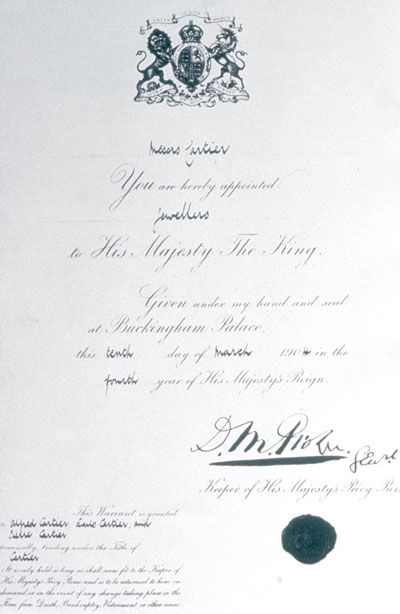 Messrs Cartier
You are hereby appointed
Jewellers
to His Majesty The King.
Given under my hand and seal
at Buckingham Palace.
this tenth day of March 1904 in the
fourth year of His Majesty's Reign.
D. M. Probyn.
Keeper of His Majesty's Privy
This Warrant is granted
Alfred Cartier, Louis Cartier, and
Cartier
trading under the Title of
Cartier
only held so long as shall seem fit to the Keeper of
His Majesty's Privy Purse and is to be returned to him on
demand, or in the event of any change taking place in the
Firm from Death, Bankruptcy, Retirement or other cause